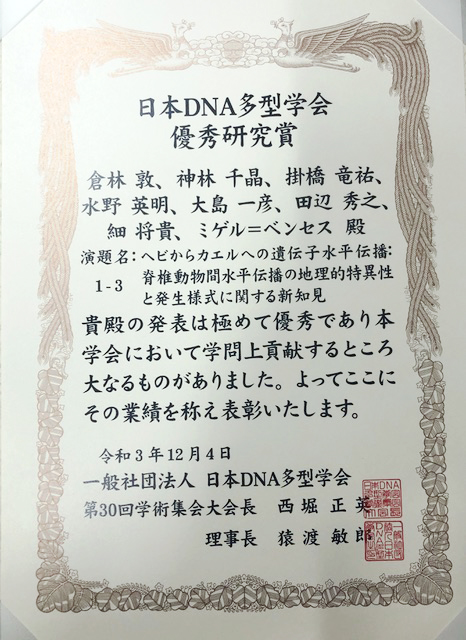 日本DNA多型学会
優秀研究賞
倉林 敦、神林 千晶、掛橋 竜祐、
水野 英明、大島 一彦、田辺 秀之、
細 将貴、ミゲル＝ベンセス 殿
演題名：ヘビからカエルへの遺伝子水平伝播：
1-3 脊椎動物間水平伝播の地理的特異性
と発生様式に関する新知見
貴殿の発表は極めて優秀であり本
学会において学問上貢献するところ
大なるものがありました。よってここに
その業績を称え表彰いたします。
令和3年12月4日
一般社団法人 日本DNA多型学会
第30回学術集会大会長 西堀 正英
理事長 猿渡 敏郎